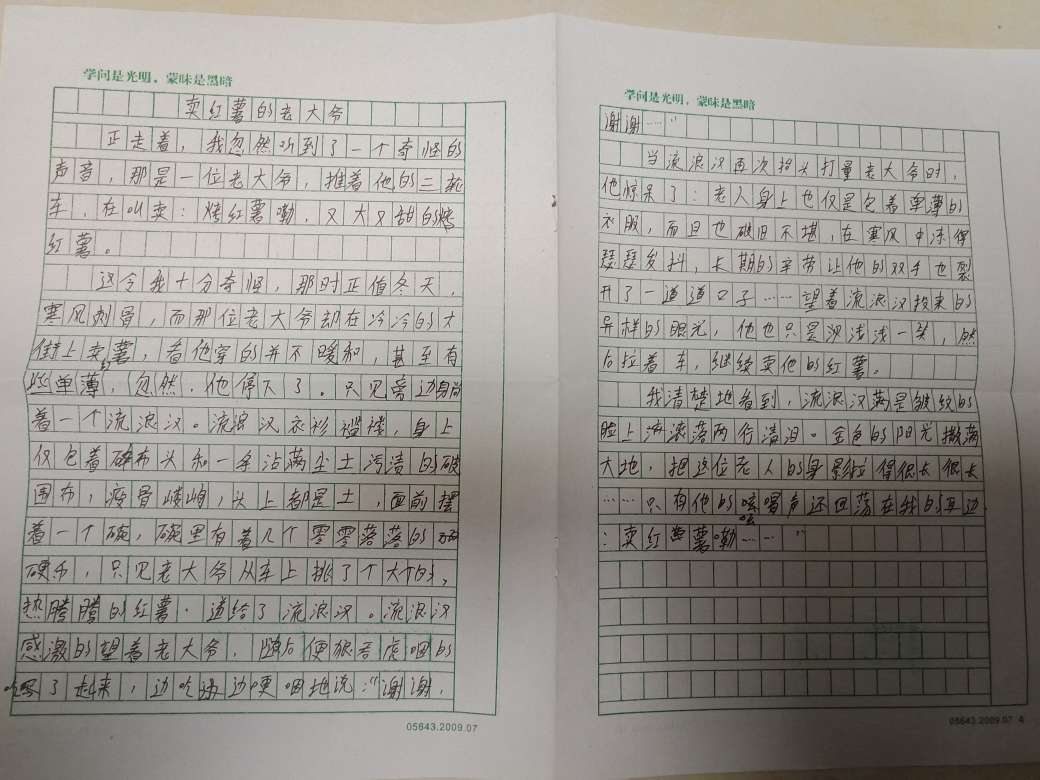 学问是光明，蒙昧是黑暗
卖红薯的老大爷
正走着，我忽然听到了一个奇怪的
声音，那是一位老大爷，推着他的三轮
车，在叫卖：烤红薯嘞，又大又甜的烤
红薯。
这令我十分奇怪，那时正值冬天，
寒风刺骨，而那位老大爷却在冷冷的大
街上卖红薯，看他穿的并不暖和，甚至有
些单薄，忽然，他停大了。只见旁边身前
着一个流浪汉。流浪汉衣衫褴褛，身上
仅包着碎布头和一条沾满尘土污渍的破
围布，瘦骨嶙峋，头上都是土，面前摆
着一个碗，碗里有着几个零零落落的
硬币，只见老大爷从车上挑了个大个的，
热腾腾的红薯，递给了流浪汉。流浪汉
感激的望着老大爷，随后便狼吞虎咽的
吃了起来，边吃边哽咽地流：“谢谢，
05643.2009.07
学问是光明，蒙昧是黑暗
谢谢……”
当流浪汉再次抬头打量老大爷时，
他惊呆了：老人身上也仅是包着单薄的
衣服，而且也破旧不堪，在寒风中冻得
瑟瑟发抖，长期的辛劳让他的双手也裂
开了一道道口子……望着流浪汉投来的
异样的眼光，他也只是浅浅一笑，然
后拉着车，继续卖他的红薯。
我清楚地看到，流浪汉满是皱纹的
脸上滚落两行清泪。金色的阳光撒满
大地，把这位老人的身影拉得很长很长
……只有他的吆喝声还回荡在我的耳边
：卖红薯嘞……”
05643.2009.07 4